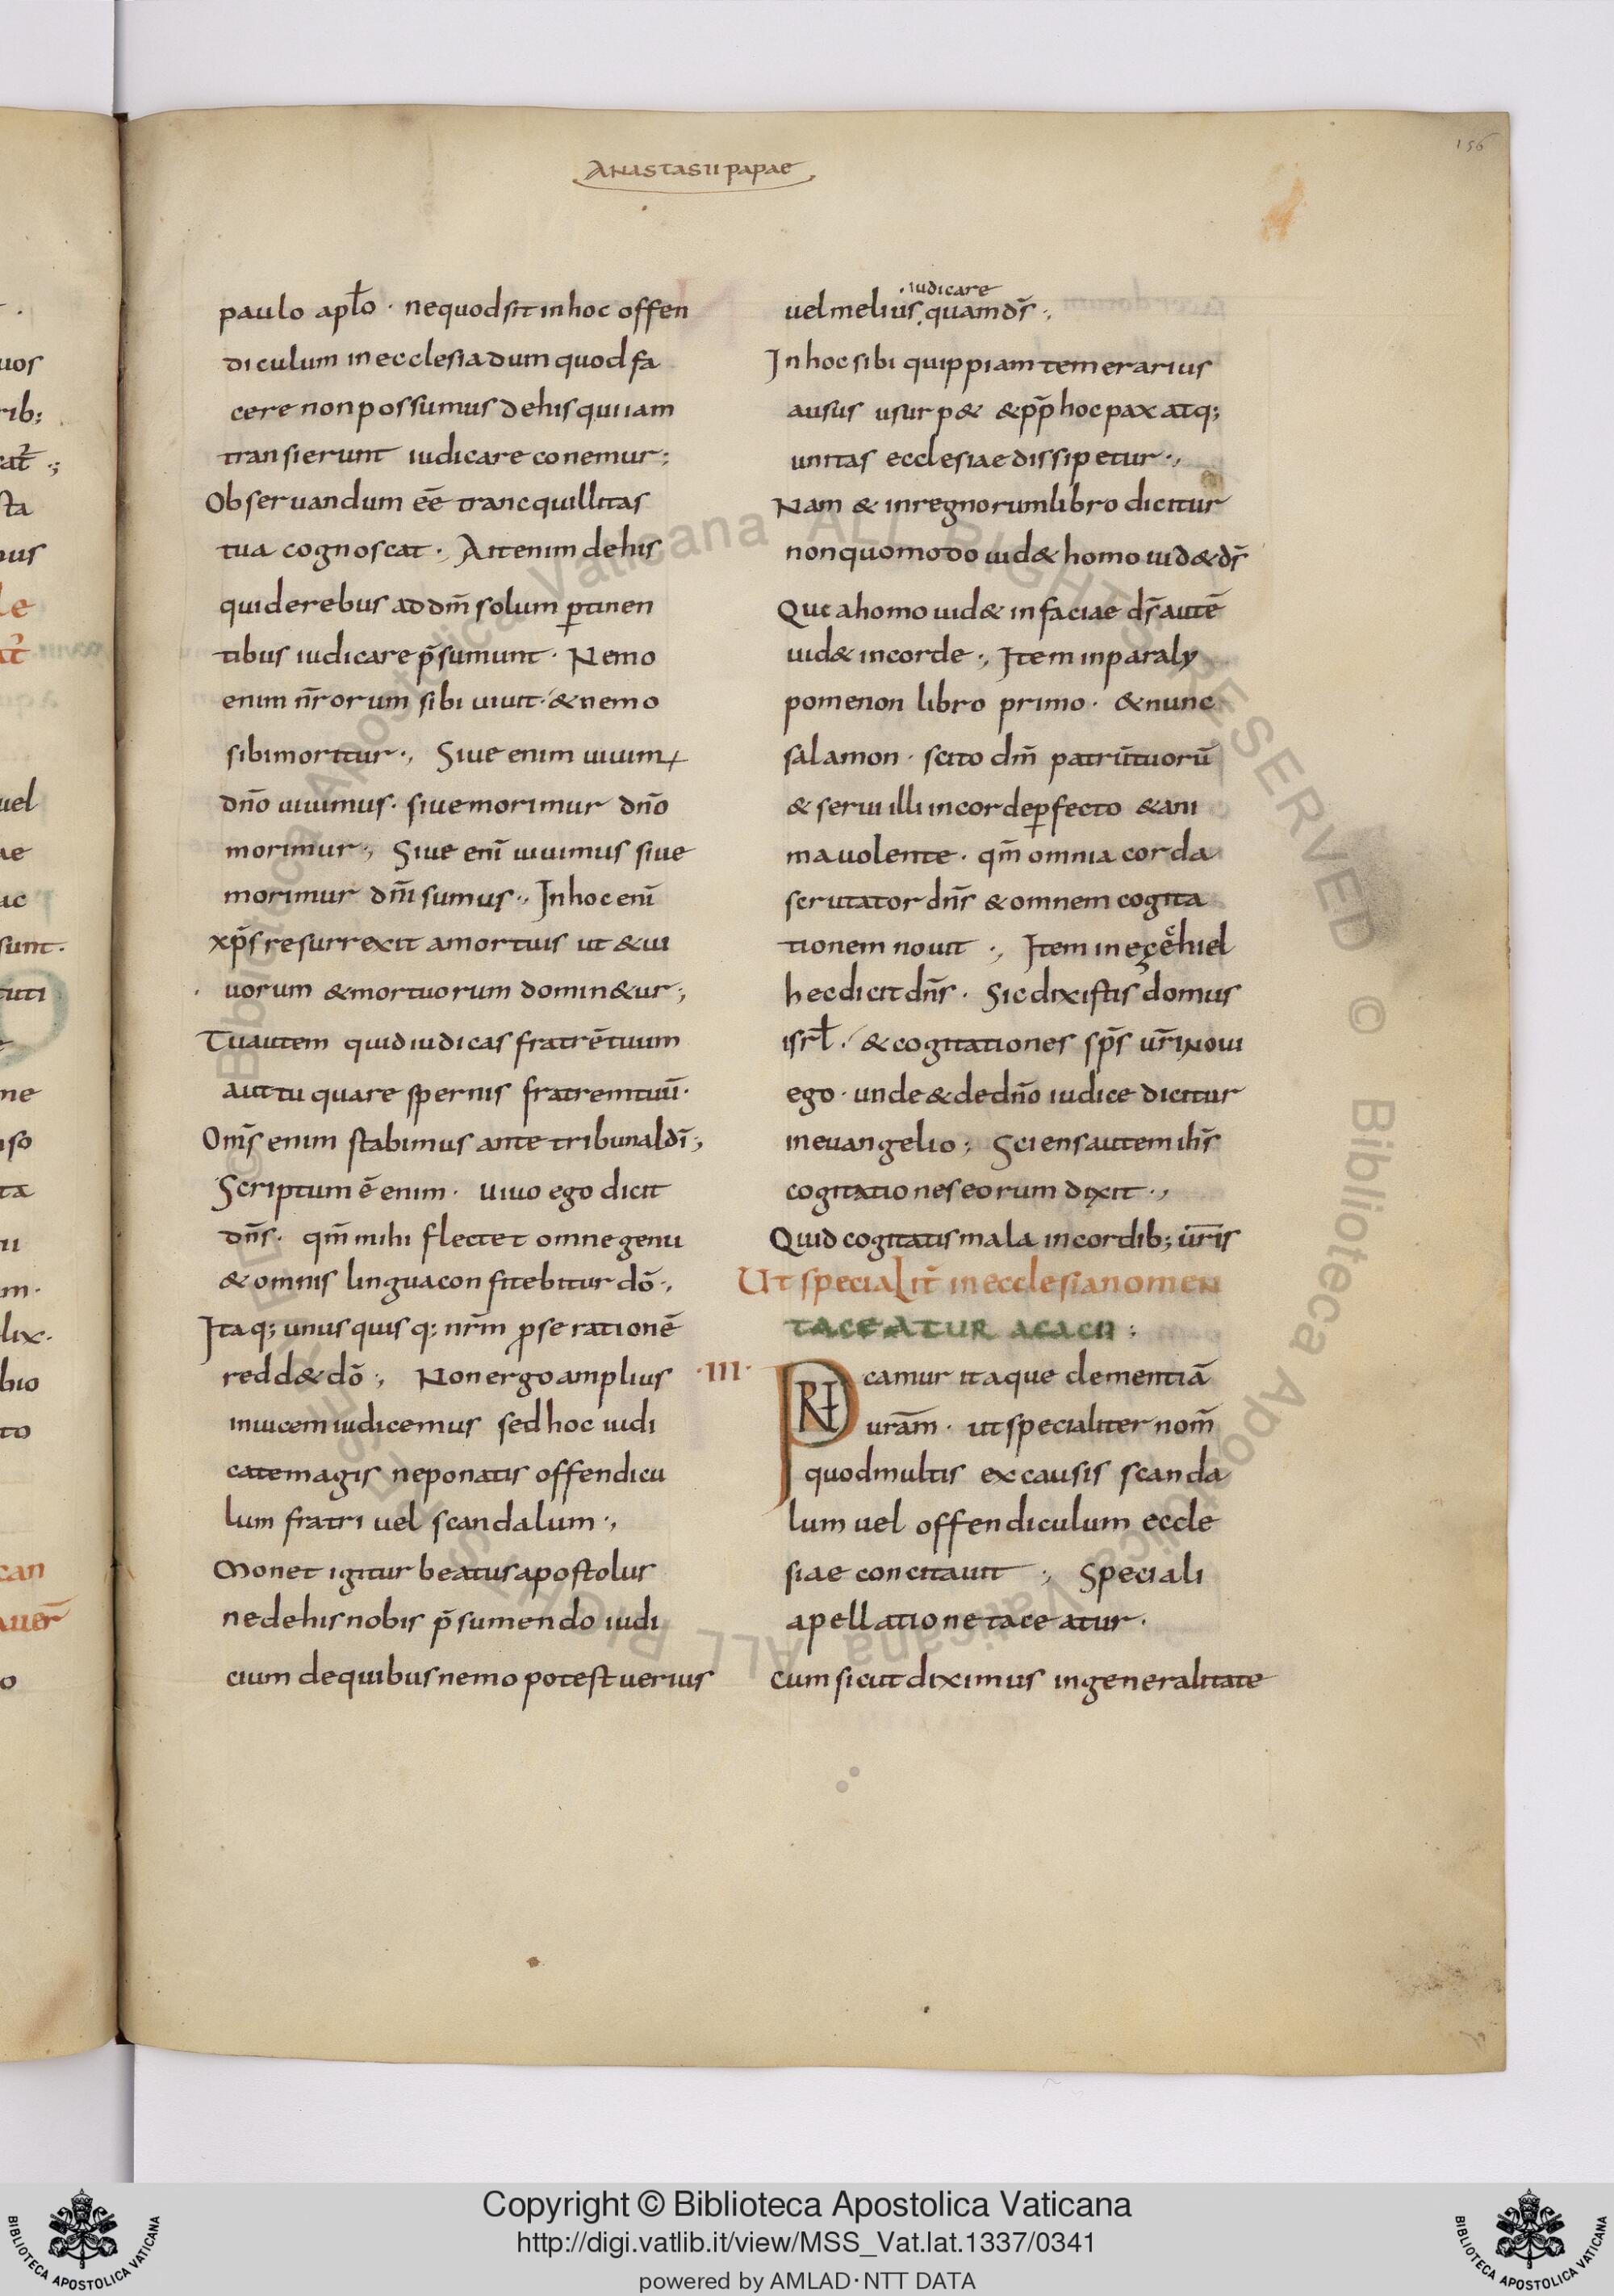 ANASTASII PAPAE
156
paulo apłō · nequodsit inhoc offen
diculum inecclesia dum quod fa
cere nonpossumus dehis quiiam
transierunt iudicare conemur;
Obseruandum eē trancquillitas
tua cognoscat ·, Attenim dehis
quiderebus ad dm̄ solum ꝑtinen
tibus iudicare p̄sumunt · Nemo
enim nr̄orum sibi uiuit · & nemo
sibimoritur ·, Siue enim uiuim᷒
dn̄o uiuimus · siue morimur dn̄o
morimur ·, Siue eni̅ uiuimus siue
morimur dn̄i sumus ·, Inhoc eni̅
xp̄s resurrexit amortuis ut & ui
uorum & mortuorum domin&ur ;
Tuautem quid iudicas fratrē tuum
aut tu quare spernis fratrem tuū ·
Om̄s enim stabimus ante tribunal dī ;
Scriptum ē enim · uiuo ego dicit
dn̄s · qm̄ mihi flectet omne genu
& omnis lingua confitebitur dō ·,
Itaq; unus quis q; nr̄m ꝓ se rationē
redd& dō ·, Nonergo amplius
inuicem iudicemus sed hoc iudi
cate magis neponatis offendicu
lum fratri uel scandalum ·,
Monet igitur beatus apostolus
nedehis nobis p̄sumendo iudi
cium dequibus nemo potest uerius
· iudicare
uel melius . quam ds̄ ·,
Inhoc sibi quippiam temerarius
ausus usurp& & pp̄ hoc pax atq;
unitas ecclesiae dissipetur ·,
Nam & inregnorum libro dicitur
non quomodo uid& homo uid& ds̄
Que ahomo uid& in faciae ds̄ autē
uid& incorde ·, Item inparaly
pomenon libro primo · & nunc
salamon · scito dm̄ patrū tuorū
& serui illi incorde ꝑfecto & ani
ma uolente · qm̄ omnia corda
scrutator dn̄s & omnem cogita
tionem nouit ·, Item in ezehiel
hec dicit dn̄s · Sic dixistis domus
isrł · & cogitationes sp̄s ur̄i noui
ego · unde & de dn̄o iudice dicitur
ineuangelio ; Sciens autem ih̄s
cogitationes eorum dixit ·,
Quid cogitatis mala incordib; ur̄is
Ut specialit̄ in ecclesia nomen
TACEATUR ACACII ;
·III· PRecamur itaque clementiā
urām · ut specialiter nom̄
quod multis ex causis scanda
lum uel offendiculum eccle
siae concitauit ·, Speciali
apellatione taceatur ·
cum sicut diximus ingeneralitate
uos
rib;
sta
uel
ae
ac
sunt ·
ne
ta
m ·
lix ·
bio
to
can
o
Copyright © Biblioteca Apostolica Vaticana
http://digi.vatlib.it/view/MSS_Vat.lat.1337/0341
powered by AMLAD · NTT DATA
BIBLIOTECA APOSTOLICA VATICANA
BIBLIOTECA APOSTOLICA VATICANA
© Biblioteca Apostolica Vaticana ALL RIGHTS RESERVED © Biblioteca Apostolica Vaticana ALL RIGHTS RESERVED